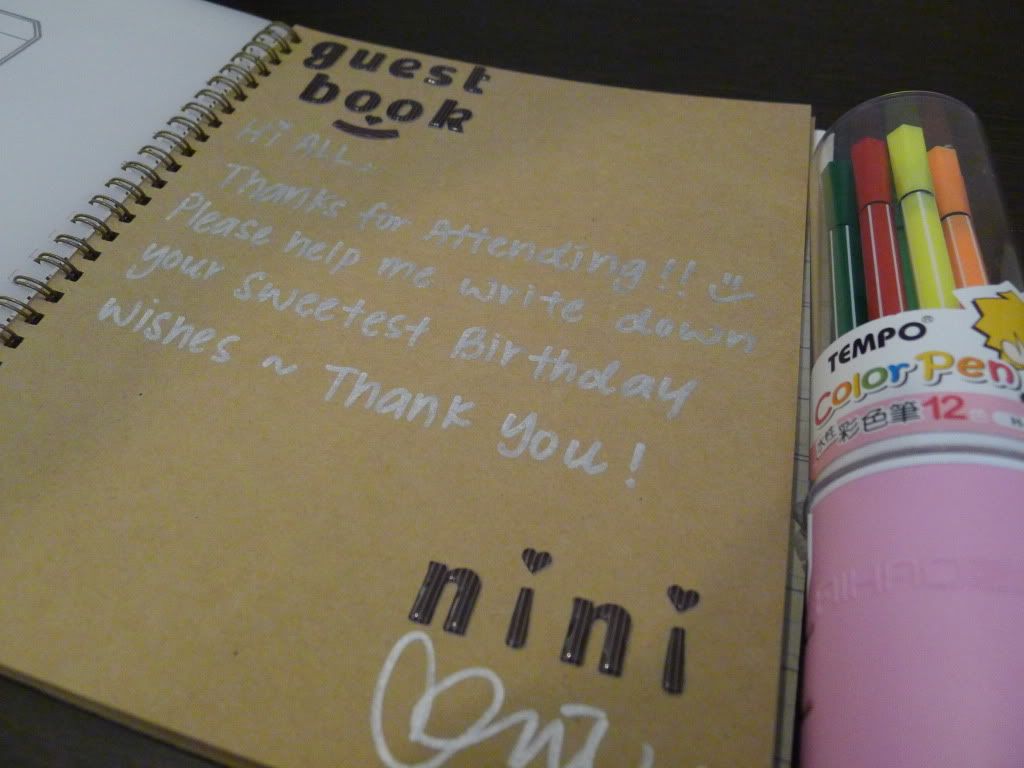 guest
book
Hi ALL,
Thanks for Attending!!
Please help me write down
your sweetest Birthday
wishes ~ Thank you!
nini
TEMPO®
Color Pen
水性 彩色筆 12色